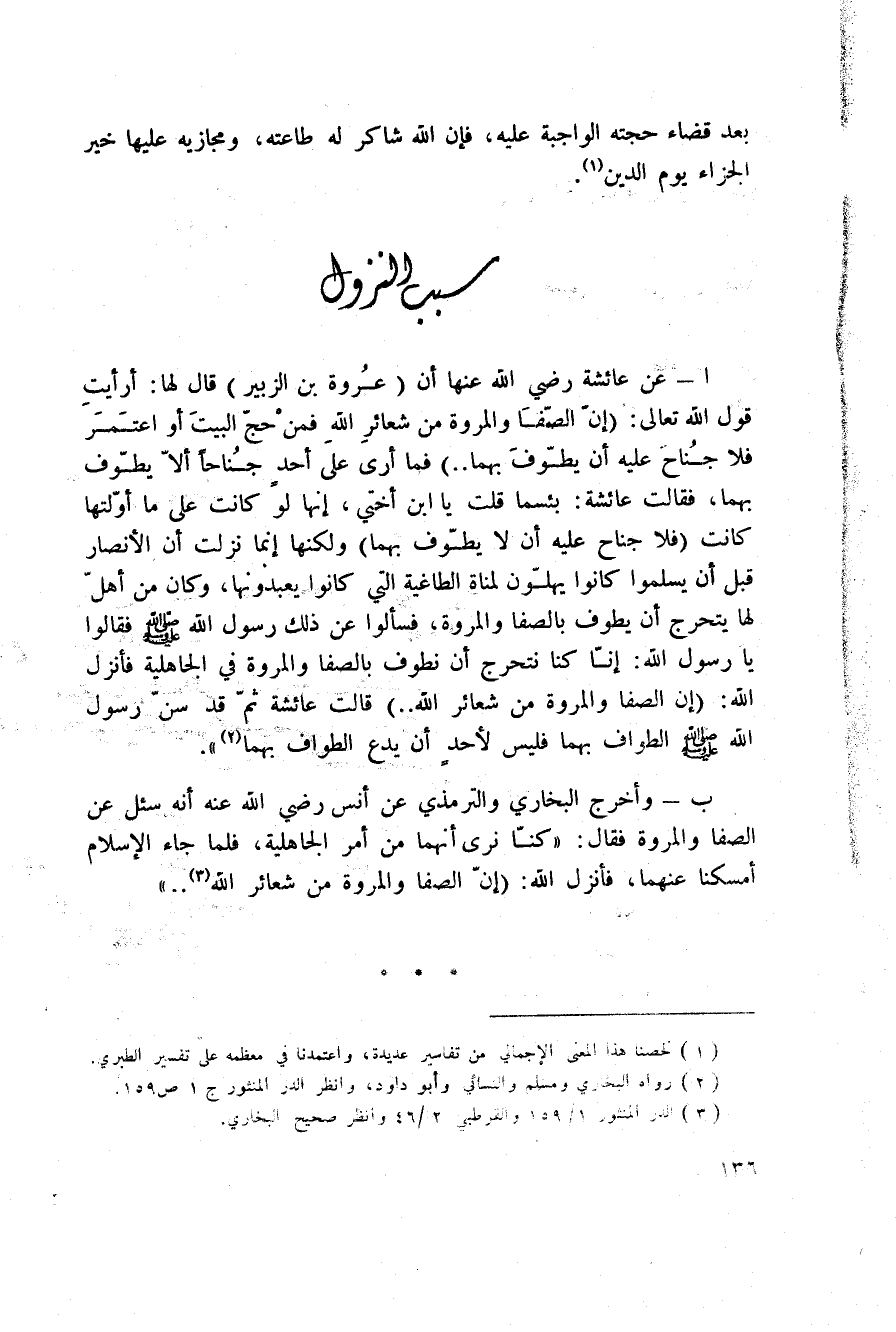 بعد قضاء حجته الواجبة عليه، فإن الله شاكر له طاعته، ومجازيه عليها خير
الجزاء يوم الدين(١).
سبب النزول
ا – عن عائشة رضي الله عنها أن ( عُروة بن الزبير ) قال لها: أرأيتِ
قول الله تعالى: (إنّ الصّفَا والمروة من شعائرِ اللهِ فمن ْحجّ البيتَ أو اعتَمَرَ
فلا جُناحَ عليه أن يطّوفَ بهما..) فما أرى على أحدٍ جُناحاً ألاّ يطّوف
بهما، فقالت عائشة: بئسما قلت يا ابن أختي، إنها لو كانت على ما أوّلتها
كانت (فلا جناح عليه أن لا يطّوف بهما) ولكنها إنما نزلت أن الأنصار
قبل أن يسلموا كانوا يهلّون لمناة الطاغية التي كانوا يعبدونها، وكان من أهلّ
لها يتحرج أن يطوف بالصفا والمروة، فسألوا عن ذلك رسول الله ﷺ فقالوا
يا رسول الله: إنّا كنا نتحرج أن نطوف بالصفا والمروة في الجاهلية فأنزل
الله: (إن الصفا والمروة من شعائر الله..) قالت عائشة ثمّ قد سنّ رسول
الله ﷺ الطواف بهما فليس لأحدٍ أن يدع الطواف بهما(٢)».
ب – وأخرج البخاري والترمذي عن أنس رضي الله عنه أنه سئل عن
الصفا والمروة فقال: «كنّا نرى أنهما من أمر الجاهلية، فلما جاء الإسلام
أمسكنا عنهما، فأنزل الله: (إنّ الصفا والمروة من شعائر الله(٣)..»
* * *
( ١ ) لخصنا هذا المعنى الإجمالي من تفاسير عديدة، واعتمدنا في معظمه على تفسير الطبري.
( ٢ ) رواه البخاري ومسلم والنسائي وأبو داود، وانظر الدر المنثور ج ١ ص١٥٩.
( ٣ ) الدر المنثور ١/ ١٥٩ والقرطبي ٢ /٤٦ وانظر صحيح البخاري.
١٣٦